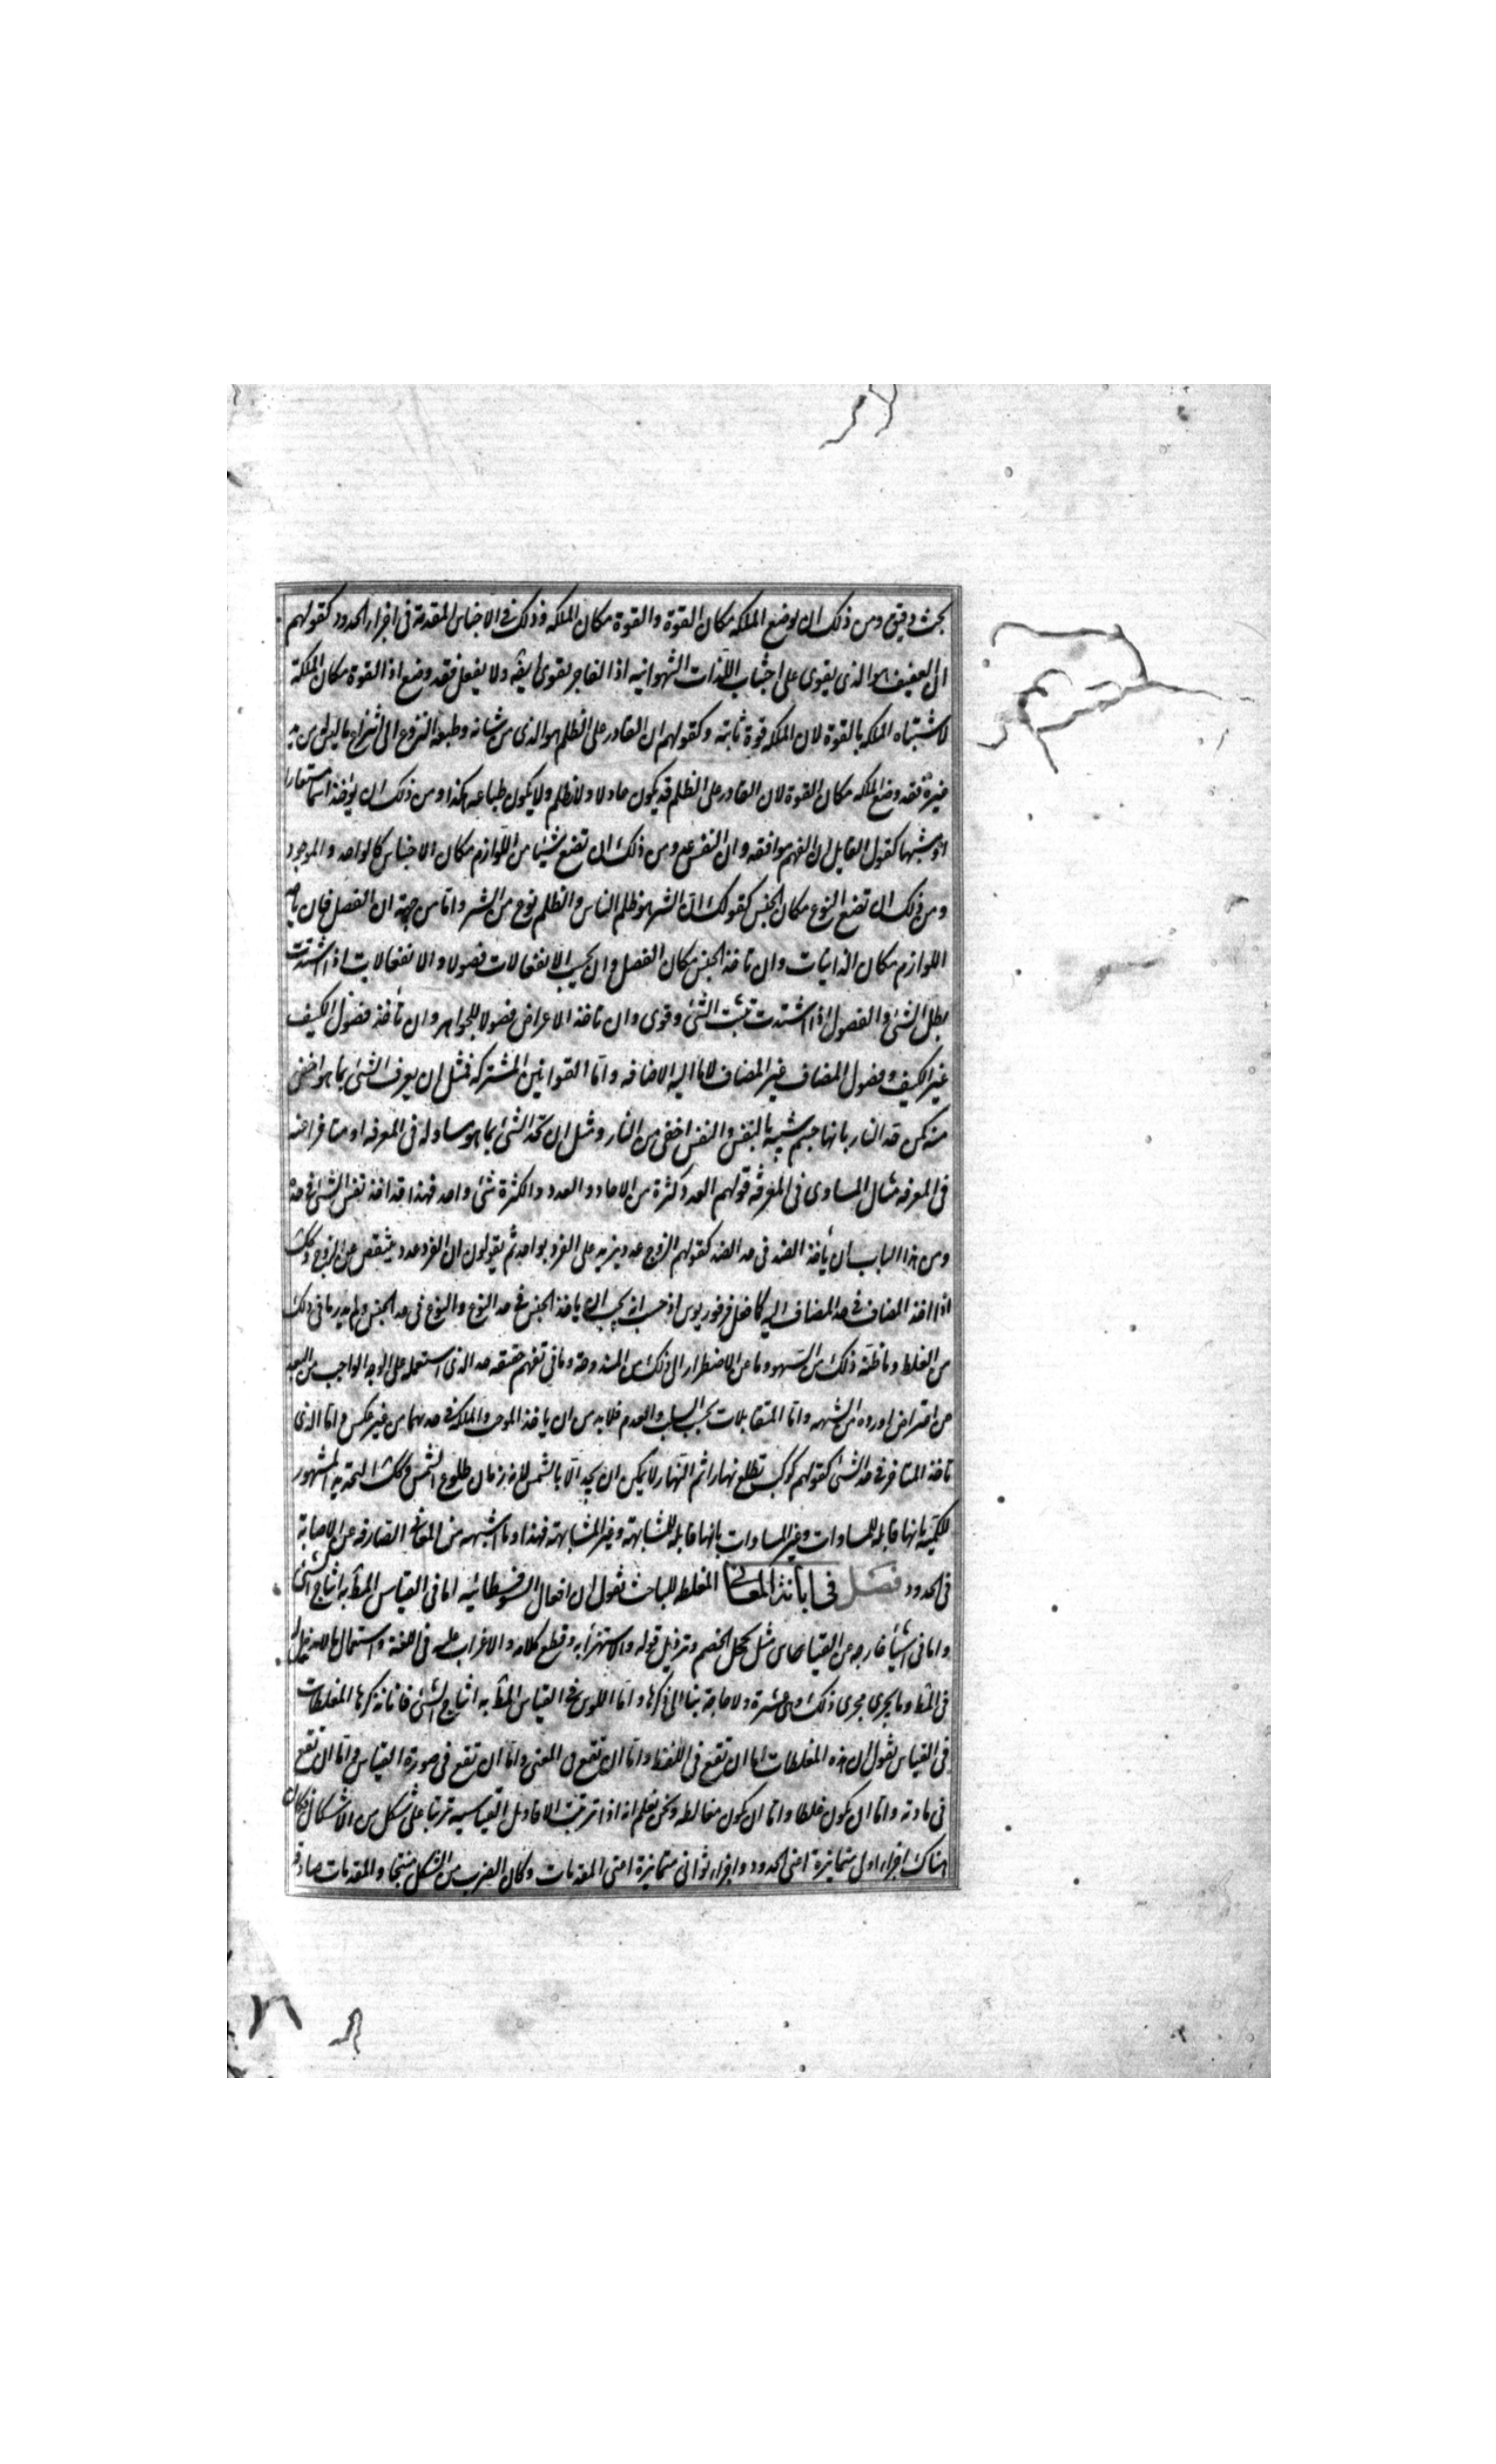 بحث دقيق ومن ذلك ان يوضع الملكه مكان القوة والقوة مكان الملكه وذلك فى الاجناس المقدمة فى اجزاء الحدود كقولهم
ان العفيف هو الذى يقوى على اجتناب اللذات الشهوانيه اذ الفاجر يقوى ايضه ولا يفعل فقد وضع اذا القوة مكان الملكة
لاشتباه الملكه بالقوة لان الملكه قوة ثابتة وكقولهم ان القادر على الظلم هو الذى من شانه وطبعه النزوع الى انتزاع ما ليس له من يد
غيره فقد وضع الملكه مكان القوة لان القادر على الظلم قد يكون عادلا ولا يظلم ولا يكون طباعه هكذا ومن ذلك ان يؤخذ اسما مستعارا
او مشتبها كقول القايل ان الفهم موافقه وان النفس عدد ومن ذلك ان تضع شيئا من اللوازم مكان الاجناس كالواحد والموجود
ومن ذلك ان تضع النوع مكان الجنس كقولك ان الشر هو ظلم الناس والظلم نوع من الشر واما من جهة ان الفصل فبان ياخذ
اللوازم مكان الذاتيات وان تاخذ الجنس مكان الفصل وان يحسب الانفعالات فصولا والانفعالات اذا اشتدت
بطل الشئ والفصول اذا اشتدت تثبت الشئ وقوى وان تاخذ الاعراض فصولا للجواهر وان تأخذ فصول الكيف
غير الكيف وفصول المضاف غير المضاف لا ما اليه الاضافه واما القوانين المشتركه فمثل ان يعرف الشئ بما هو اخفى
منه كمن حد النار بانها جسم شبيه بالنفس والنفس اخفى من النار ومثل ان يحد الشئ بما هو مساو له فى المعرفه او متاخر عنه
فى المعرفه مثال المساوى فى المعرفة قولهم العدد كثرة من الاحاد والعدد والكثرة شئ واحد فهذا قد اخذ نفس الشئ فى حده
ومن هذا الباب ان يأخذ الضد فى حد الضد كقولهم الزوج عدد يزيد على الفرد بواحد ثم يقولون ان الفرد عدد ينقص عن الزوج وكك
اذا اخذ المضاف فى حد المضاف اليه كما فعل فرفوريوس اذ حسب انه يجب ان ياخذ الجنس فى حد النوع والنوع فى حد الجنس ولم يدر ما فى ذلك
من الغلط وما ظنه ذلك من السهو وما عن الاضطرار الى ذلك من المندوحة وما فى تفهم حقيقه حد الذى استعمله على الوجه الواجب من البعد
عن اعتراض اورده من الشبهه واما المتقابلات بحسب السلب والعدم فلا بد من ان ياخذ الموجب والملكه فى حديهما من غير عكس واما الذى
تاخذ المتاخر فى حد الشئ كقولهم كوكب تطلع نهارا ثم النهار لا يمكن ان يحد الا بالشمس لانه زمان طلوع الشمس وكك التحديد المشهور
للكميه بانها قابله للمساوات وغير المساوات بانها قابله للمشابهة وغير المشابهة فهذا وما اشبهه من المعانى الصارفه عن الاصابة
فى الحدود فصل فى ابانة المعانى المغلطه للباحث نقول ان افعال السوفسطائيه اما فى القياس المط به انتاج الشئ
واما فى اشياء خارجه عن القياس مثل تخجيل الخصم وترذيل قوله والاستهزأ به وقطع كلامه والاغراب عليه فى اللغة واستعمال ما لا مدخل له
فى المط وما يجرى مجرى ذلك وهى عشرة ولا حاجة بنا الى ذكرها واما اللواتى فى القياس المط به انتاج الشئ فانا نذكرها المغلطات
فى القياس نقول ان هذه المغلطات اما ان تقع فى اللفظ واما ان تقع فى المعنى واما ان تقع فى صورة القياس واما ان تقع
فى مادته واما ان يكون غلطا واما ان يكون مغالطه ونحن نعلم انه اذا ترتبت الاقاويل القياسيه ترتبا على شكل من الاشكال وكان
هناك اجزاء اولى متمايزة اعنى الحدود واجزاء ثوانى متمايزة اعنى المقدمات وكان الضرب من الشكل منتجا والمقدمات صادقه